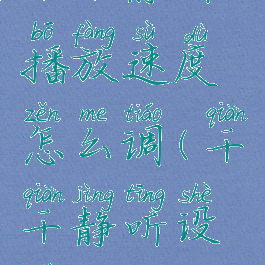 bō fàng sù dù
播放速度
zěn me tiáo qiàn
怎么调(千
qiàn jìng tīng shè
千静听设